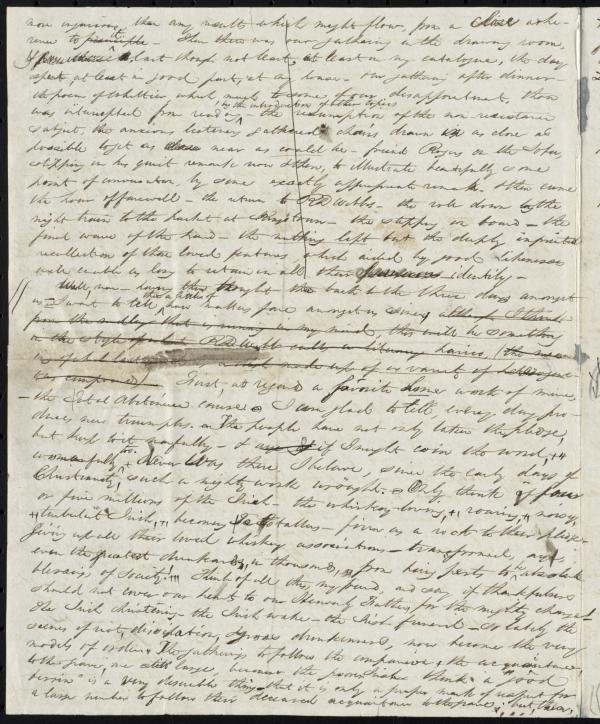 more injurious, than any results which might flow, from a close adhe-
rence to principle - Then there was our gathering in the drawing room,
last though not least, at least in my catalogue, the day
spent, at least a good part, at my house - our gathering after dinner -
the poem of Whittier which much to some of our disappointment, then
by the introduction of other topics
was interrupted from reading - the resumption of the non-resistance
subject, the anxious listeners gathered - chairs drawn in as close as
possible to get as near as could be - friend Rogers on the Sofa,
slipping in his quiet remark now & then, to illustrate beautifully some
point of conversation, by some exactly appropriate remark. Then came
the hour of farewell - the return to RD Webbs - the ride down by the
night train to the Packet at Kingstown - the stepping on board - the
final wave of the hand - the nothing left but the deeply imprinted
recollection of those loved features, which aided by good likenesses
will enable us long to retain in all their identity -
Well, now - having thought the back to the three days amongst
us - I want to tell how matters fare amongst us since,
from the medley that is running in my mind, this will be something
in the style of what RD Webb calls a literary
made up of a variety of
was composed - First, as regards a favorite home work of mine,
- the Total Abstinence cause. I am glad to tell every day pro-
duces new triumphs. The people have not only taken the pledge,
but keep it manfully - & if I might coin the word, "
womanfully too. Never was there I believe, since the early days of
Christianity, such a mighty work wrought. Only think of four
or five millions of the Irish - the whiskey-loving, "roaring," noisy,
"turbulent" Irish, " become Teetotallers - firm as a rock to their pledge -
giving up all their loved whiskey associations - transformed, aye,
even the greatest drunkards, in thousands, from being pests to be absolute
blessings of Society!!! Think of all this, my friend, and say, if thankfulness
should not cover our hearts to our Heavenly Father, for the mighty change!
The Irish christening - the Irish wake - the Irish funeral - so lately the
scenes of riot, dissipation, gross drunkenness, now become the very
models of order. The gatherings to follow the companion & the acquaintance
to the grave, are still large, because the poor people think a "good
berrin" is a very desirable thing, that it is only a proper mark of respect for
a large number to follow their deceased acquaintance to the grave; but, then,